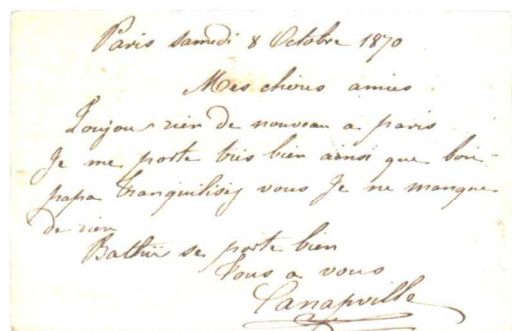 Paris samedi 8 Octobre 1870
Mes chères amies
Toujour rien de nouveau a paris
Je me porte très bien ainsi que bon-
papa tranquilisez vous Je ne manque
de rien
se porte bien
Tous a vous
Canapville